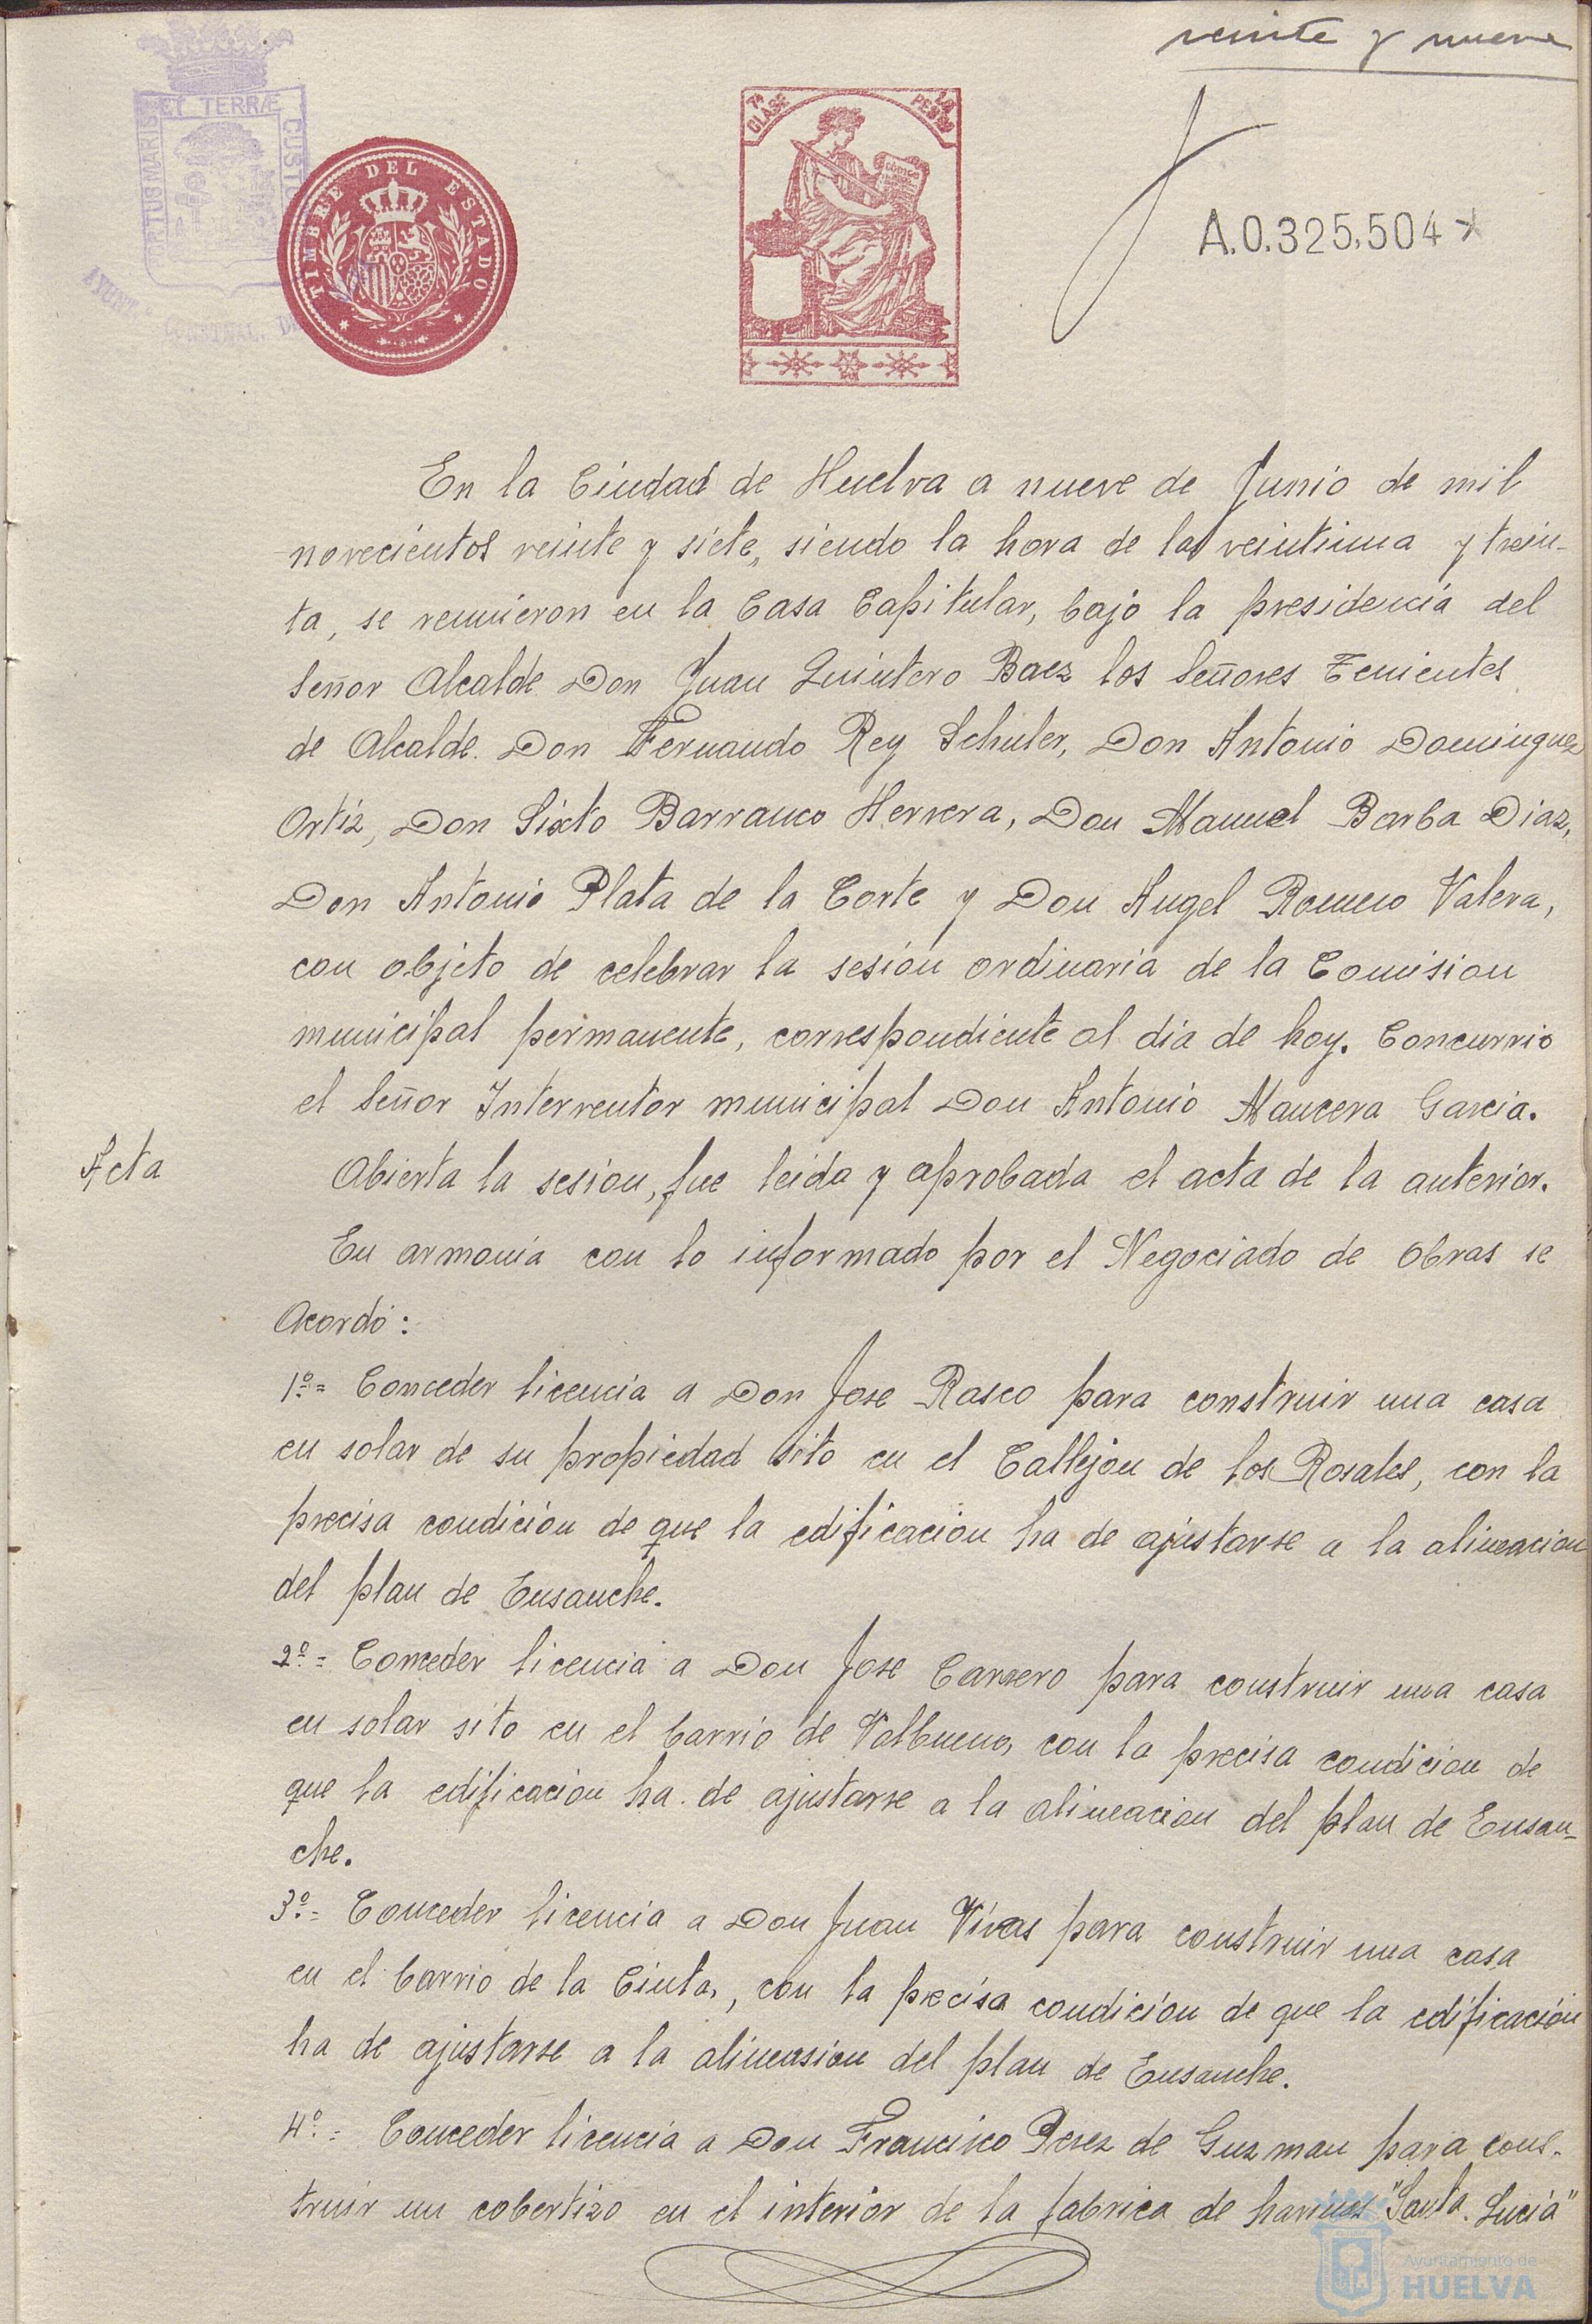 veinte y nueve
ET TERRÆ
CUSTO
TUS MARIS
AYUNT
CONSTITUC. DE
TIMBRE DEL ESTADO
7ª CLASE
PESETAS
A.0.325.504*
En la Ciudad de Huelva a nueve de Junio de mil
novecientos veinte y siete, siendo la hora de las veintiuna y trein-
ta, se reunieron en la Casa Capitular, bajo la presidencia del
Señor Alcalde Don Juan Quintero Baez los Señores Tenientes
de Alcalde. Don Fernando Rey Schuler, Don Antonio Dominguez
Ortiz, Don Sixto Barranco Herrera, Don Manuel Barba Diaz,
Don Antonio Plata de la Corte y Don Angel Romero Valera,
con objeto de celebrar la sesión ordinaria de la Comision
municipal permanente, correspondiente al dia de hoy. Concurrio
el Señor Interventor municipal Don Antonio Mancera Garcia.
Acta
Abierta la sesion, fue leida y aprobada el acta de la anterior.
En armonia con lo informado por el Negociado de Obras se
Acordó:
1º.= Conceder licencia a Don Jose Rasco para construir una casa
en solar de su propiedad sito en el Callejon de los Rosales, con la
precisa condición de que la edificacion ha de ajustarse a la alineacion
del plan de Ensanche.
2º.= Conceder licencia a Don Jose Carrero para construir una casa
en solar sito en el barrio de Valbuena, con la precisa condicion de
que la edificacion ha de ajustarse a la alineacion del plan de Ensan-
che.
3º.= Conceder licencia a Don Juan Vivas para construir una casa
en el barrio de la Cinta, con la precisa condición de que la edificación
ha de ajustarse a la alineasion del plan de Ensanche.
4º.= Conceder licencia a Don Francisco Perez de Guzman para cons-
truir un cobertizo en el interior de la fabrica de harinas "Santa Lucia"
Ayuntamiento de
HUELVA